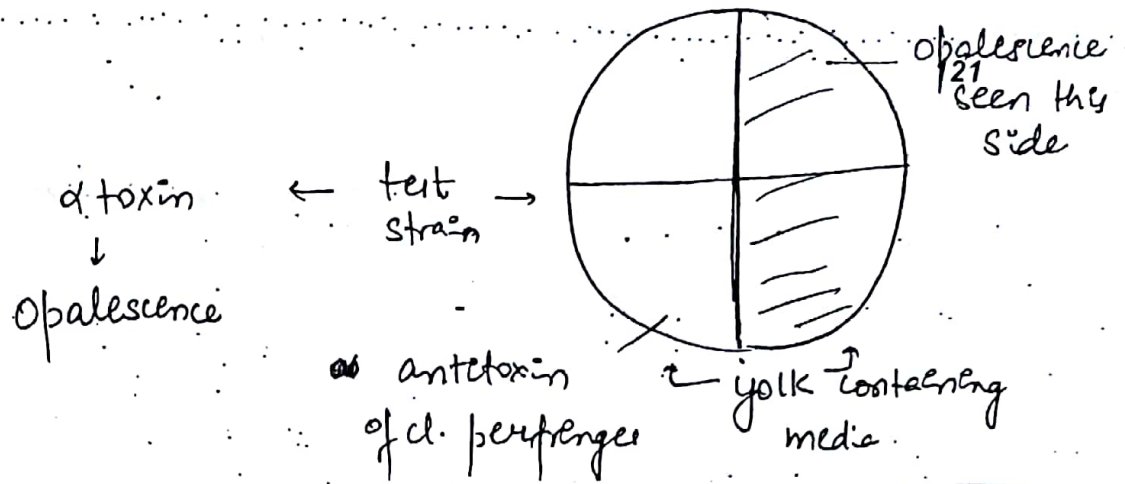 opalescence
21
seen this
side
α toxin ← test →
strain
↓
opalescence
antitoxin
of cl. perfringes
yolk containing
media.